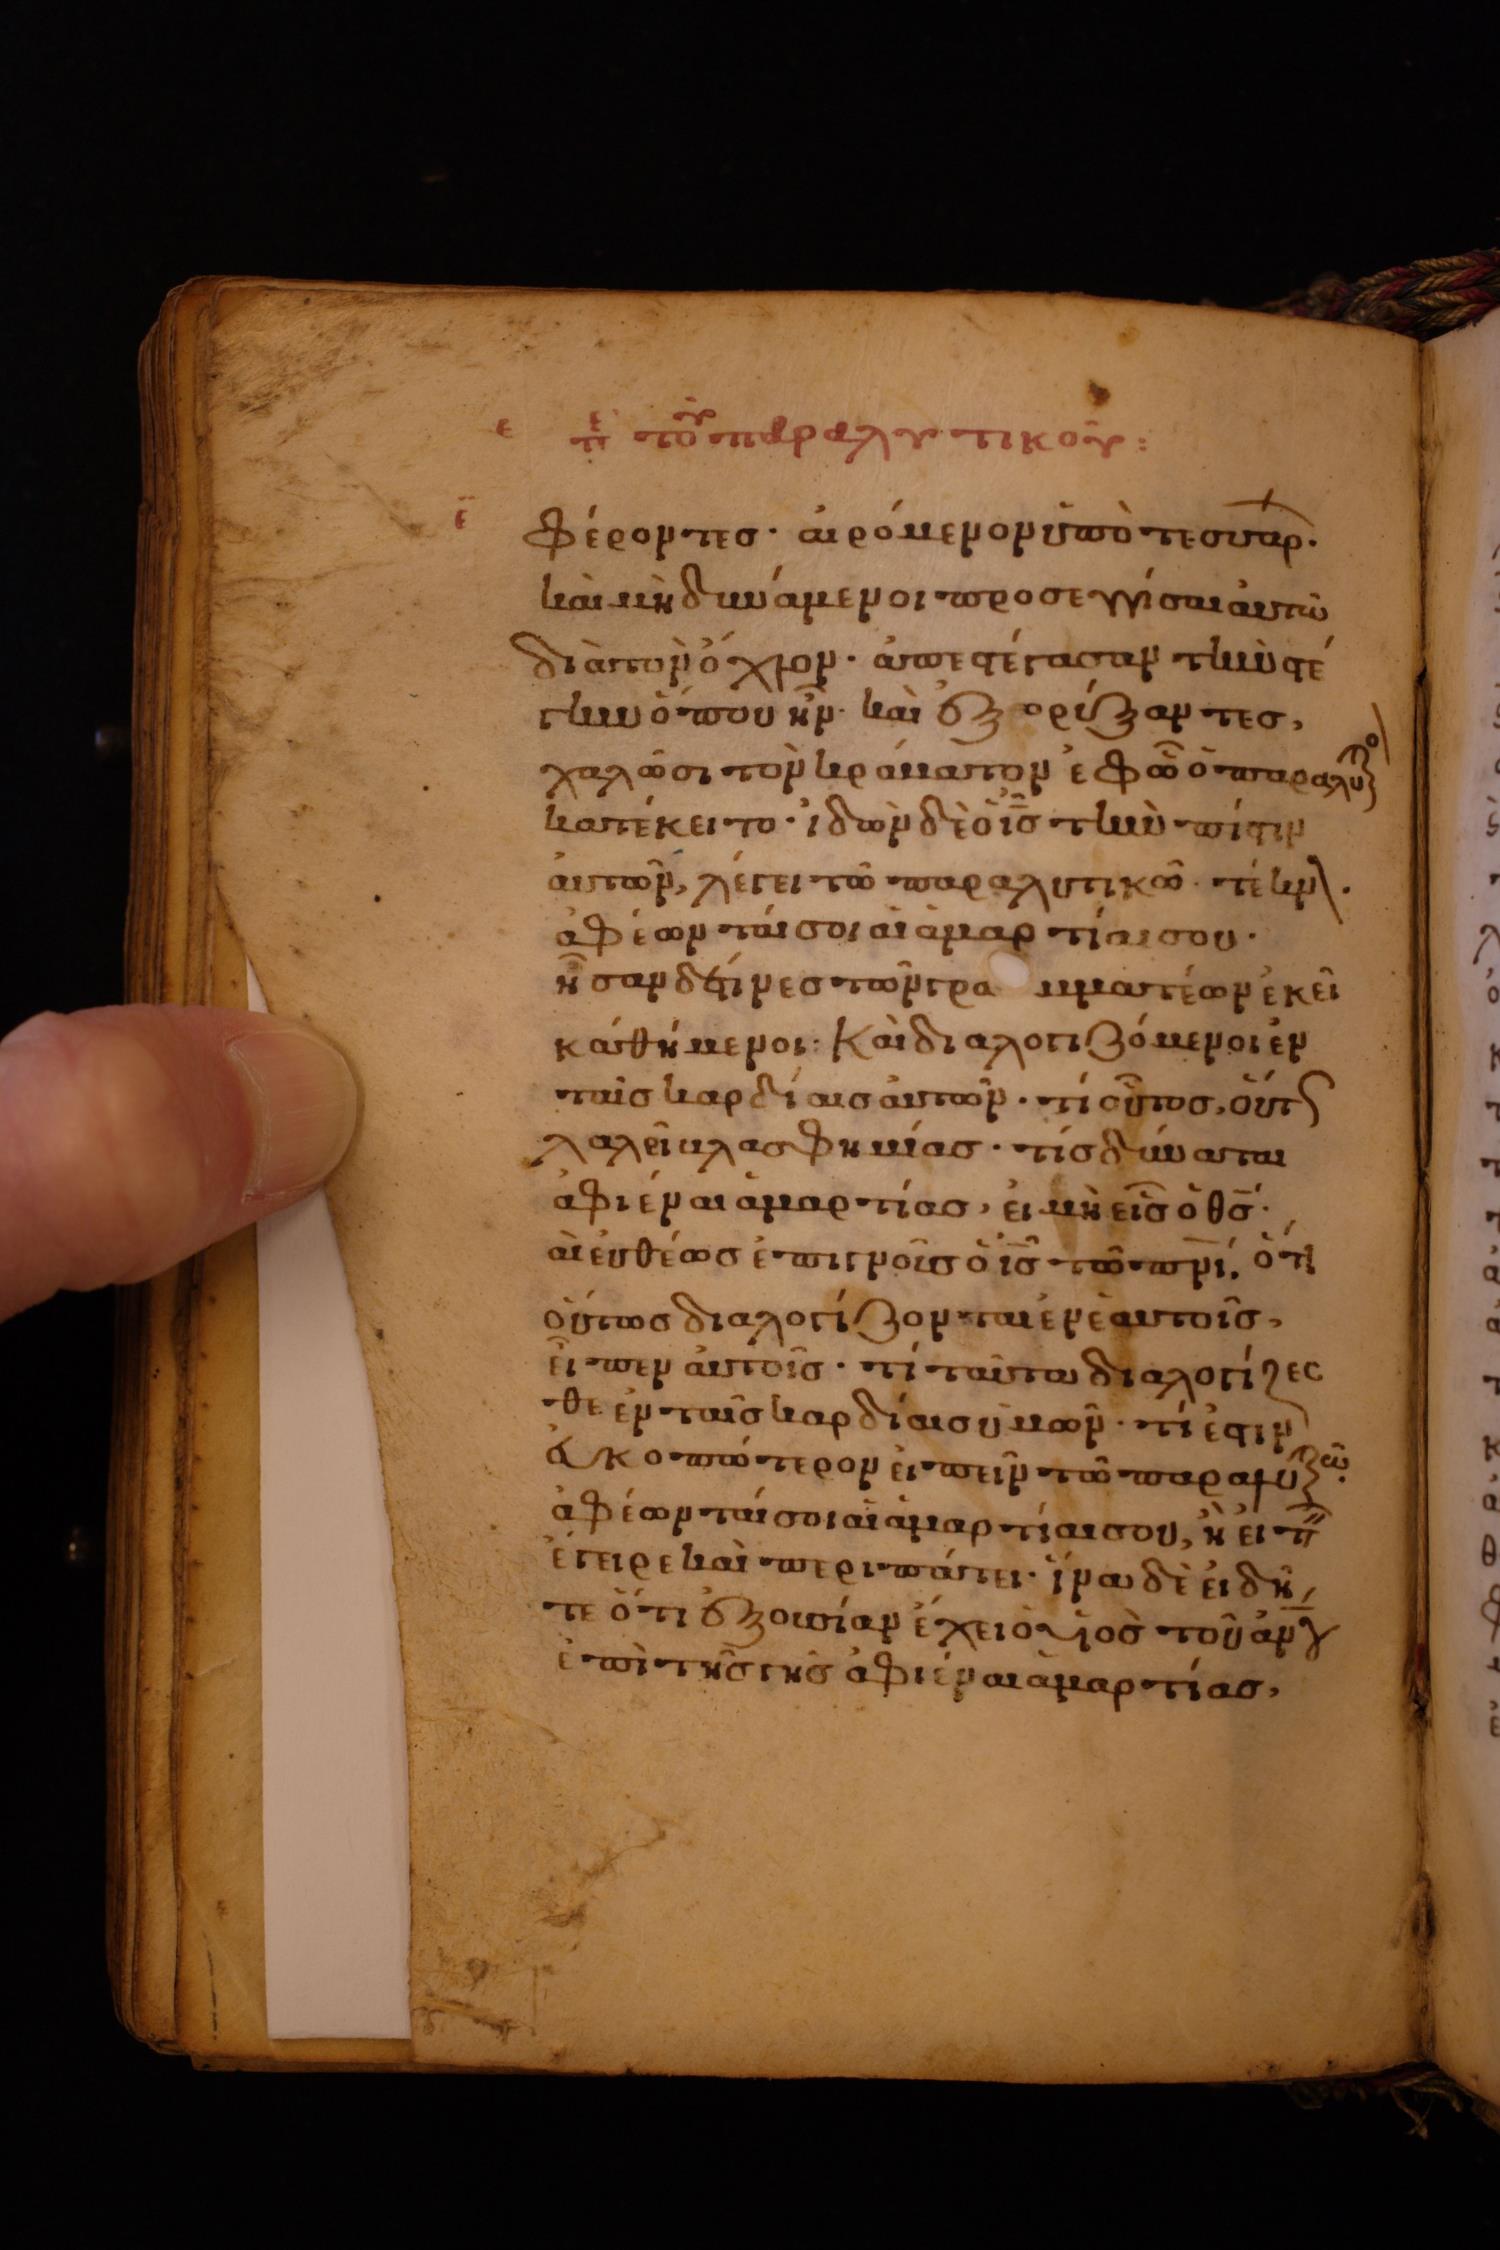 ε πε τοῦ παραλυτικοῦ:
ε φέροντες· αἰρόμενον ὑπὸ τεσσαρ·
καὶ μὴ δυνάμενοι προσεγγίσαι αὐτῶ
διὰ τὸν ὄχλον· ἀπεστέγασαν τὴν στέ
γην ὅπου ἦν· καὶ ἐξορύξαντες,
χαλῶσι τὸν κράματον ἐφ ῶ ὁ παραλυτικο
κατέκειτο· ἰδὼν δὲ ὁ ις τὴν πίστιν
αὐτῶν, λέγει τῶ παραλυτικῶ· τέκν·
ἀφέωνται σοι αἱ ἁμαρτίαι σου·
ἦσαν δέ τινες τῶν γραμματέων ἐκεῖ
καθήμενοι: Καὶ διαλογιζόμενοι ἐν
ταῖς καρδίαις αὐτῶν· τί οὗτος, οὕτ
λαλεῖ βλασφημίας· τίς δύναται
ἀφιέναι ἁμαρτίας, εἰ μὴ εἷς ὁ θς·
αὶ εὐθέως ἐπιγνοῦς ὁ ις τῶ πνι, ὅτι
οὕτως διαλογίζονται ἐν ἑαυτοῖς,
εἶπεν αὐτοῖς· τί ταῦτα διαλογίζεσ
θε ἐν ταῖς καρδίαις ὑμῶν· τί ἐστιν
ἐυκοπώτερον εἰπεῖν τῶ παραλυτικῶ·
ἀφέωνται σοι αἱ ἁμαρτίαι σου, ἢ εἰπ
ἔγειρε καὶ περιπάτει· ἵνα δὲ εἰδῆ
τε ὅτι ἐξουσίαν ἔχει ὁ υἱὸς τοῦ ἀνου
ἐπὶ τῆς γῆς ἀφιέναι ἁμαρτίας,